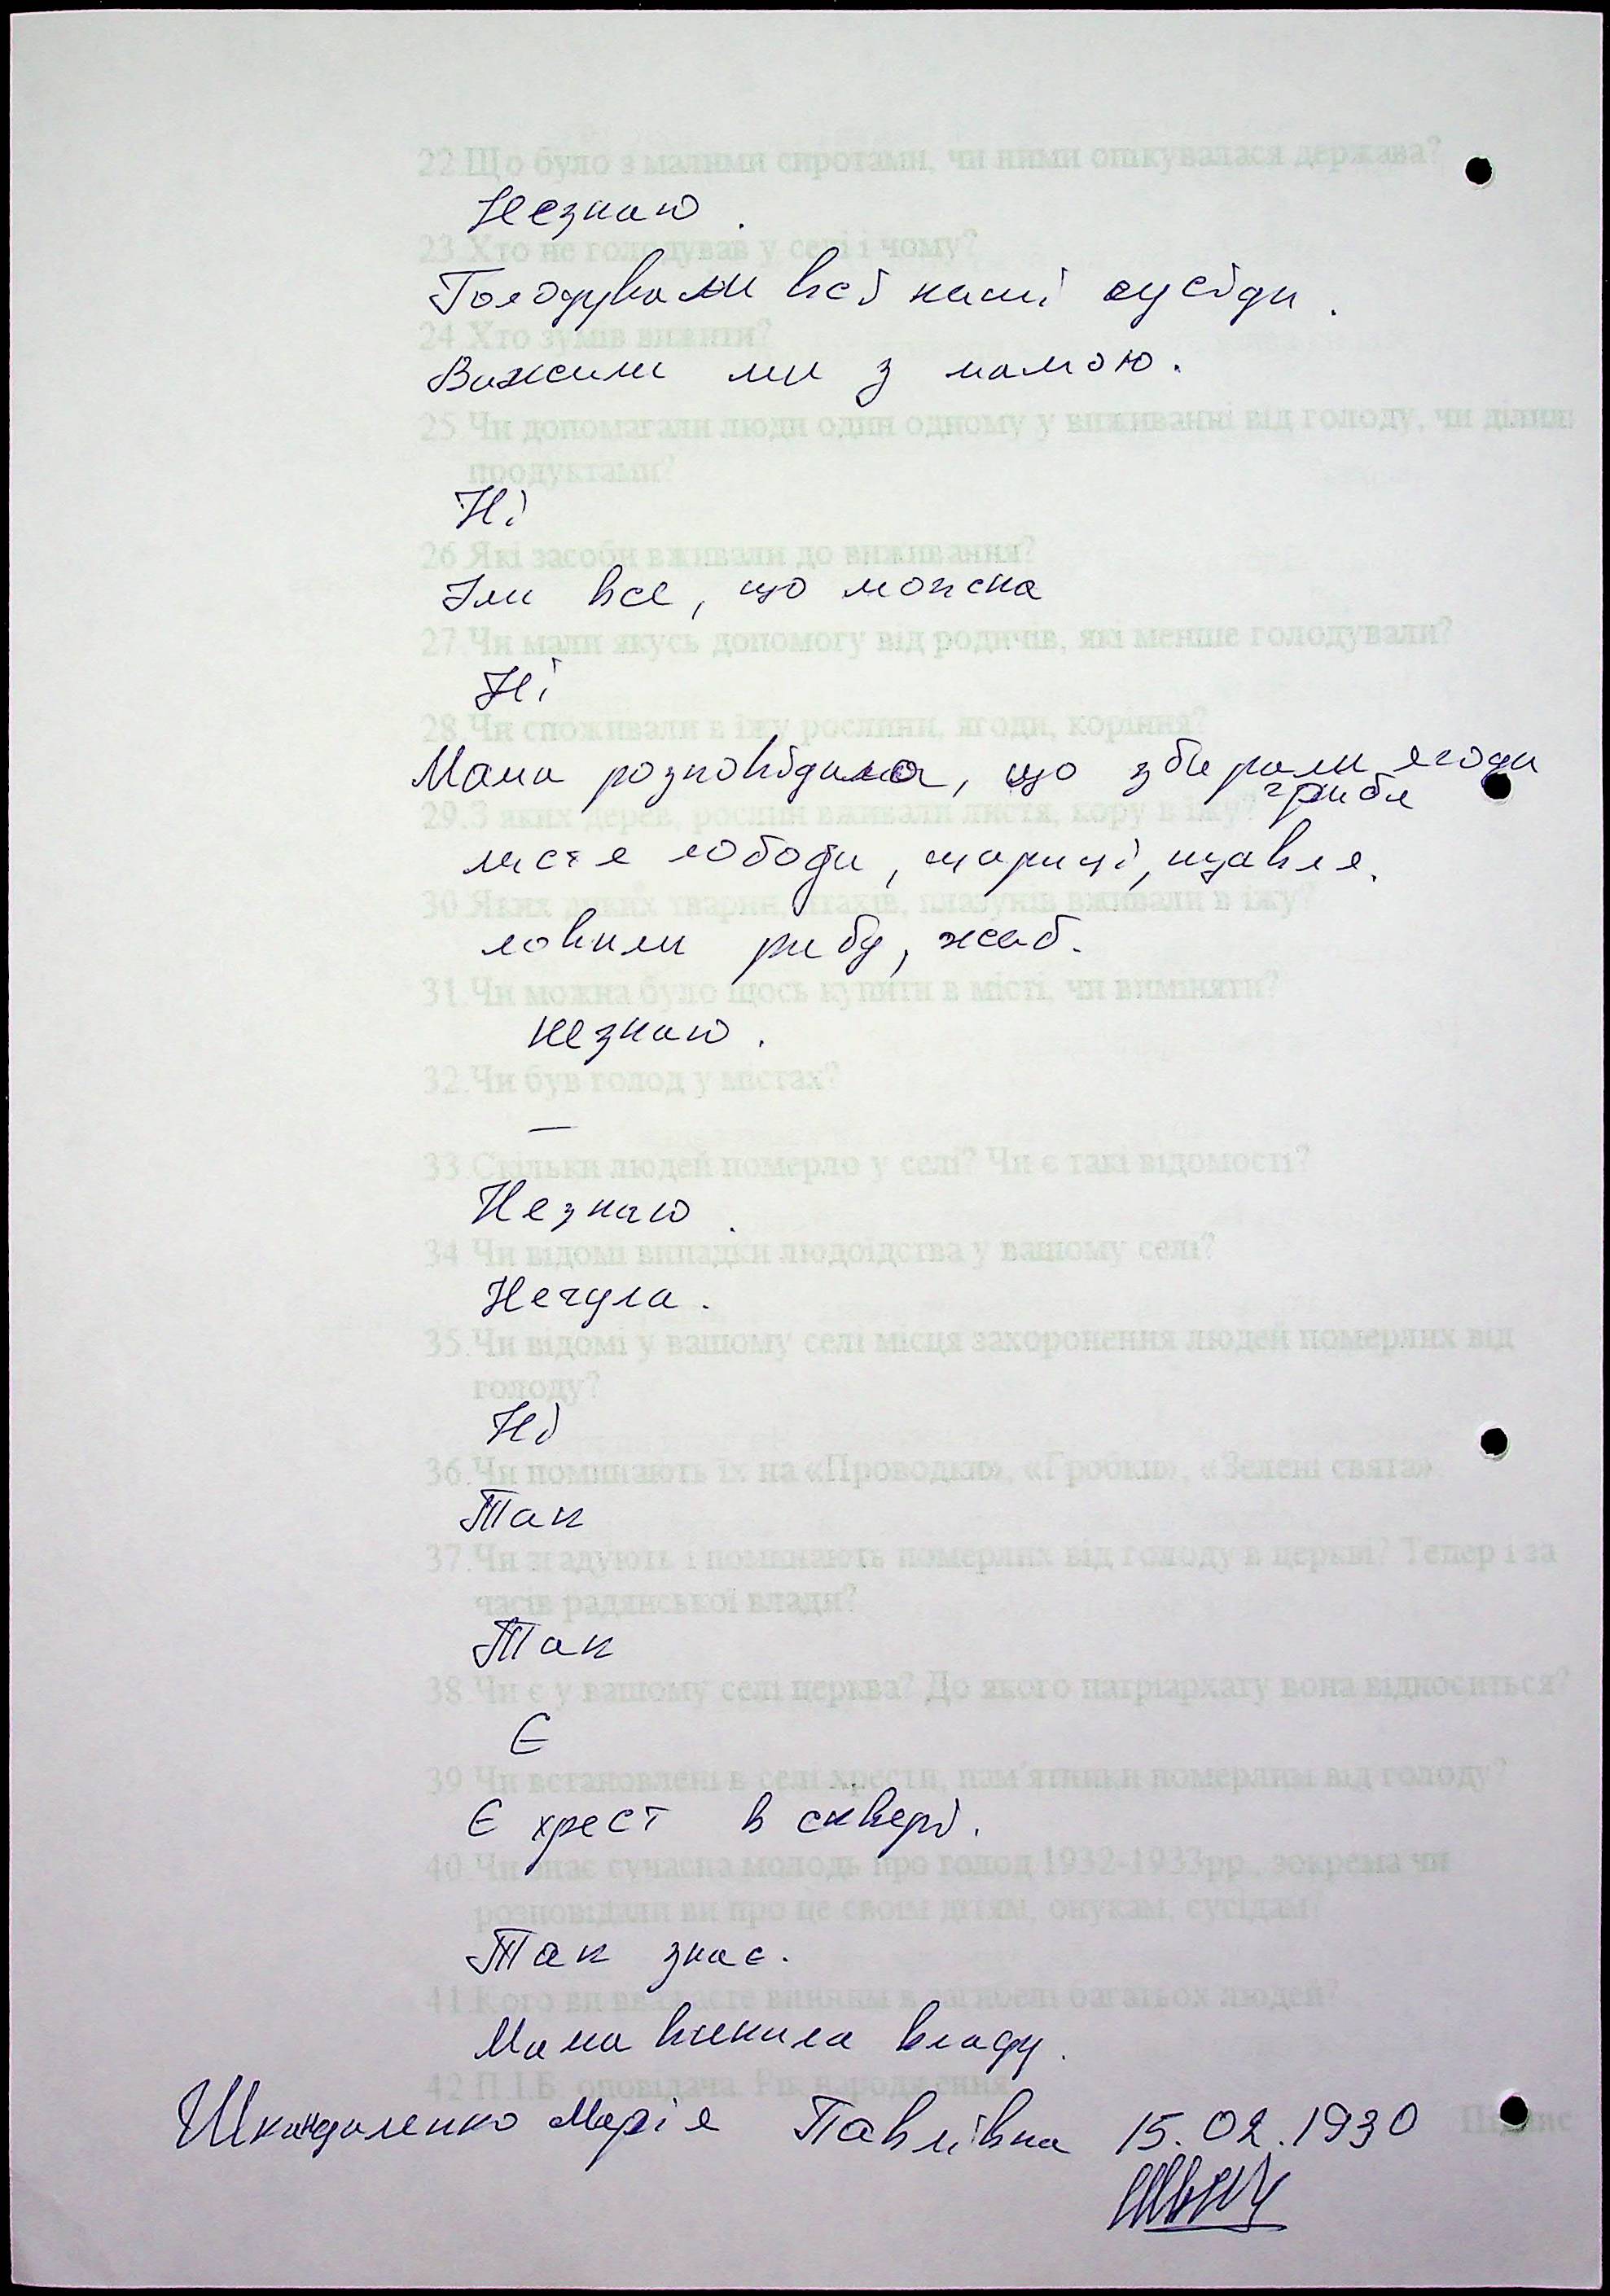 22.Що було з малими сиротами, чи ними опікувалася держава?
Незнаю.
23.Хто не голодував у селі і чому?
Голодували всі наші сусіди.
24.Хто зумів вижити?
Вижили ми з мамою.
25.Чи допомагали люди один одному у виживанні від голоду, чи ділили
продуктами?
Ні
26.Які засоби вживали до виживання?
Їли все, що можна
27.Чи мали якусь допомогу від родичів, які менше голодували?
Ні
28.Чи споживали в їжу рослини, ягоди, коріння?
Мама розповідала, що збирали ягоди
гриби
29.З яких дерев, рослин вживали листя, кору в їжу?
листя лободи, щириці, щавля.
30.Яких диких тварин, птахів, плазунів вживали в їжу?
ловили рибу, жаб.
31.Чи можна було щось купити в місті, чи виміняти?
незнаю.
32.Чи був голод у містах?
—
33.Скільки людей померло у селі? Чи є такі відомості?
Незнаю.
34.Чи відомі випадки людоїдства у вашому селі?
Нечула.
35.Чи відомі у вашому селі місця захоронення людей померлих від
голоду?
Ні
36.Чи поминають їх на «Проводки», «Гробки», «Зелені свята»
Так
37.Чи згадують і поминають померлих від голоду в церкві? Тепер і за
часів радянської влади?
Так
38.Чи є у вашому селі церква? До якого патріархату вона відноситься?
Є
39.Чи встановлені в селі хрести, пам'ятники померлим від голоду?
Є хрест в сквері.
40.Чи знає сучасна молодь про голод 1932-1933рр., зокрема чи
розповідали ви про це своїм дітям, онукам, сусідам?
Так знає.
41.Кого ви вважаєте винним в загибелі багатьох людей?
Мама винила владу.
42.П.І.Б. оповідача. Рік народження
Підпис
Шкандаленко Марія Павлівна 15.02.1930